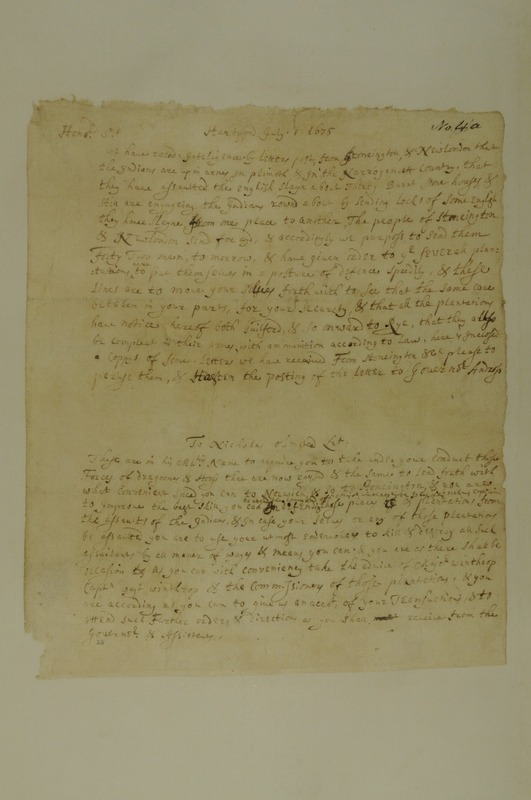 Hond. Sr Hartford July . 1 . 1675 No. 4 a
we have rec intelligence by letters post from Stoneington, & N: London that
the Indians are up in arms in plimoth & in the Narrogancett Country, that
they have assaulted the English slayn about thirty Burnt some houses &
still are engageing the Indians round about by sending locks of some English
they have slayne from one place to another, The people of Stoneington
& N London send for ayd, & accordingly we purposs to send them
forty Two men, to morrow, & have given order to ye severall plan-
tations to put themselves in a posture of defence speedily, & these
lines are to move your selves forthwith to see that the same care
be taken in your parts, for your security, & that all the plantations
have notice hereof both Guilford, & so onward to Rye, that they allso
be compleat in their armes, with ammunition according to Law, here is inclosed
Copies of some letters we have received from Stoneington &c: please to
peruse them, & Hasten the posting of the letter to Governor Andross
To Nicholas Olmsted Let:
These are in his Maties Name to require you to take under your conduct those
forces of dragoones & troop there are now rayed & the same to lead forth with
what convenient speed you can to Norwich & so to Stoneington, & you are
to improve the best skill you can in defending those places & plantations from
the assaults of the Indians, & in case your selves or any of those plantations
be assaulted you are to use your utmost endeavoures to kill & destroy all such
assailants by all manner of wayes & means you can, & you are as there shall be
occasion & as you can with conveniency take the advice of Majr Winthrop
Capt wait winthrop & the Commissioners of those plantations, & you
are according as you can to give us an account of your Transactions, & to
attend such further orders & directions as you shall receive from the
Governor & Assistants.